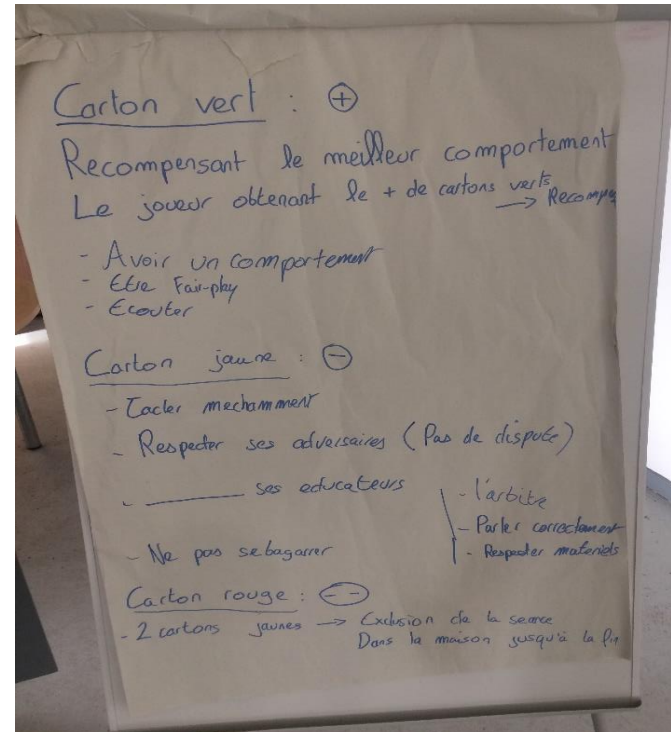 Carton vert : +
Recompensant le meilleur comportement
Le joueur obtenant le + de cartons verts
→ Recompens
- Avoir un comportement
- Etre Fair-play
- Ecouter
Carton jaune : -
- Tacler mechamment
- Respecter ses adversaires (Pas de dispute)
- ________ ses educateurs
- l'arbitre
- Parler correctement
- Respecter materiels
- Ne pas se bagarrer
Carton rouge : --
- 2 cartons jaunes → Exclusion de la seance
Dans la maison jusqu'à la fin